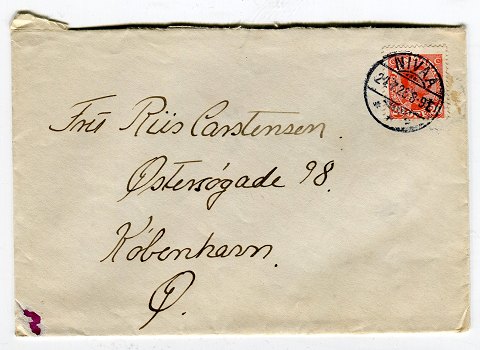 NIVAA
Frú Riis Carstensen.
Østersøgade 98.
København.
Ø.